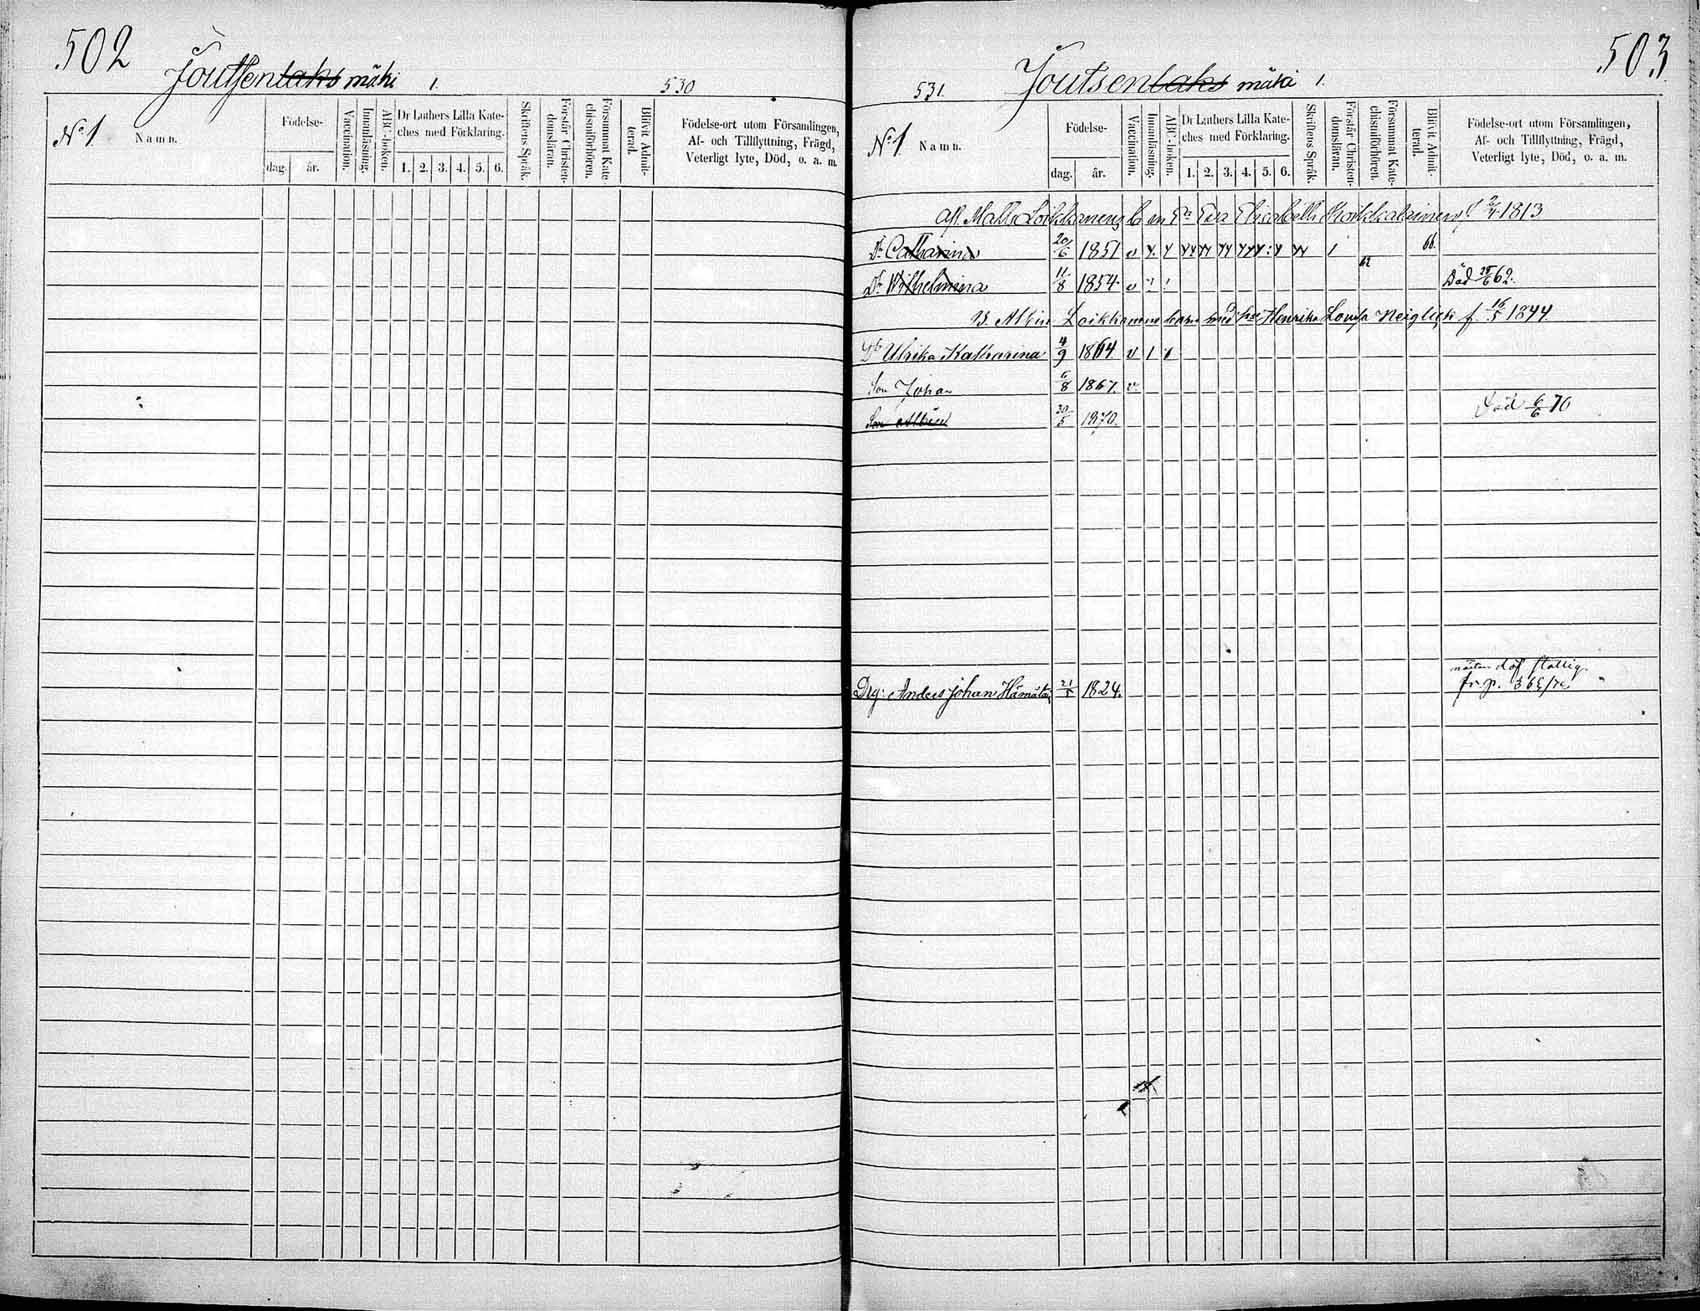 502
Joutsenlaks mäki 1.
530
No 1
Namn.
Födelse-
dag.
år.
Vaccination.
Innanläsning.
ABC-boken.
Dr Luthers Lilla Kate-
ches med Förklaring.
1. 2. 3. 4. 5. 6.
Skriftens Språk.
Förstår Christen-
domsläran.
Försummat Kate-
chismiförhören.
Blifvit Admit-
terad.
Födelse-ort utom Församlingen,
Af- och Tillflyttning, Frägd,
Veterligt lyte, Död, o. a. m.
503
531
Joutsenlaks mäki 1.
No 1
Namn.
Födelse-
dag.
år.
Vaccination.
Innanläsning.
ABC-boken.
Dr Luthers Lilla Kate-
ches med Förklaring.
1. 2. 3. 4. 5. 6.
Skriftens Språk.
Förstår Christen-
domsläran.
Försummat Kate-
chismiförhören.
Blifvit Admit-
terad.
Födelse-ort utom Församlingen,
Af- och Tillflyttning, Frägd,
Veterligt lyte, Död, o. a. m.
Matts Loikkanens b. m. Eva Elisabeth 1813
Dr Catharina 20/6 1851 v
Dr Wilhelmina 11/8 1854 v Död 62.
Albin Loikkanens barn med Henrika Lovisa Neiglick f. 16/5 1844
Dr Ulrika Katharina 4/9 1864 v 1
Son Johan 6/8 1867. v.
Son Albin 30/5 1870. Död 6/6 70
Drg: Anders Johan 21/5 1824. nästan döf
fr. p.